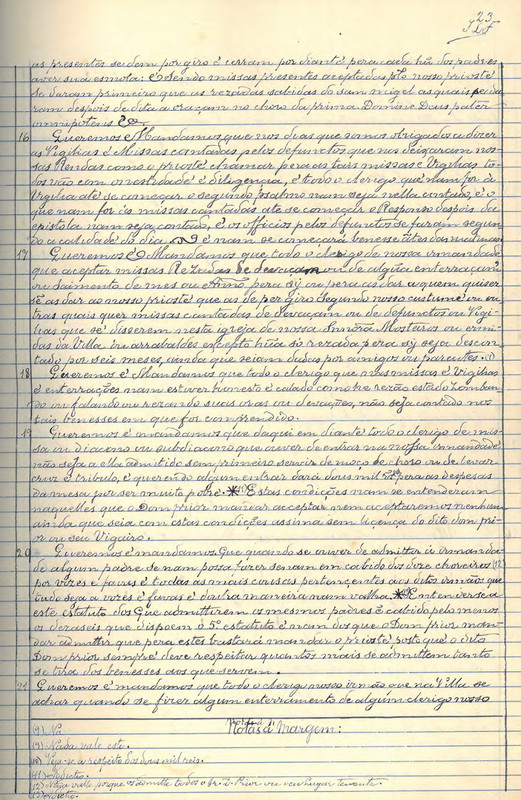 23
as presentes se dem por giro é corram por diante pera cada hũ dos padres
aver sua esmola: é sendo missas presentes aceptadas pelo nosso prioste
se daram primeiro que as rezadas sabidas do sam migel as quais se da
ram despois de dita a oraçam no choro da prima. Domine Deus pater
omnipotens
16 Queremos é Mandamos que nos dias que somos obrigados a dizer
as Vigilias é Missas cantadas pelos defunctos que nos deixaram nos
sas Rendas como o prioste chamar pera as tais missas e Vigilias, to
dos vão com onestidade é diligencia, é todo o clerigo que nam for á
Vigilia até se começar o segundo psalmo nam seja nella contado, é o
que nam for ás missas cantadas ate se começar o Responso despois da
epistola nam seja contado, é os officios pelos defunctos se faram segun
do a calidade do dia é nam se começará benesse antes das matinas
17 Queremos é Mandamos que todo o clerigo de nossa irmandade
que aceptar missas Rezadas de devaçam ou de algũa enterraçam
ou saimento de mes ou Anno, pera sy ou pera as dar a quem quiser
sé as dar ao nosso prioste que as dé por giro segundo nosso custume ou ou
tras quais quer missas cantadas de devaçam ou de defunctos ou Vigi
lias que se disserem nesta igreja de nossa Senhora Mosteiros ou ermi
das da Villa ou arrabaldes excepto hũa só rezada pera sy seja descon
tado por seis meses, ainda que seiam dadas por amigos ou parentes.
18 Queremos é Mandamos que todo o clerigo que nas missas é Vigilias
é enterrações nam estiver honesto é calado como he rezão estado zomban
do ou falando ou rezando suas oras ou devações, não seja contado nos
tais benesses em que for comprendido.
19 Queremos é mandamos que daqui em diante todo o clerigo de mis
sa ou diacono ou subdiacono que ouver de entrar na nossa irmandade
não seja a ella admitido sem primeiro servir de moço de choro ou de levar
cruz é tribulo, é querendo algum entrar dara dous mil rs pera as despesas
da mesa por ser muito pobre. * Estas condições nam se entenderam
naquelles que o Dom prior mandar aceptar nem aceptaremos nenhum
ainda que seia com estas condições assima sem liçença do dito dom pri
or ou seu Vigairo.
20 Queremos é mandamos. Que quando se ouver de admitir á irmanda
de algum padre se nam possa fazer senam em cabido dos doze choreiros
por vozes é favas é todas as mais cousas pertençentes aos ditos irmãos que
tudo seja a vozes é favas é doutra maneira nam valha. * E entenderse á
este estatuto dos Que admittirem os mesmos padres é cabido pelo menos
os dezaseis que dispoem ó 5º estatuto é nam dos que o Dom prior man
dar admittir que pera estes bastará mandar o prioste, posto que o dito
Dom prior sempre deve respeitar quantos mais se admittem tanto
se tira dos benesses aos que servem.
21 Queremos é mandamos que todo o clerigo nosso irmão que na Villa se
achar quando se fizer algum enterramento de algum clerigo nosso
Notas á Margem:
(8) Na
(9) Nada vale este.
(10) Veja-se a respeito dos dous mil reis.
(11) Predicto.
(12) Nega valle porque os admitte todos o Sr. D. Prior ou seu lugar tenente.